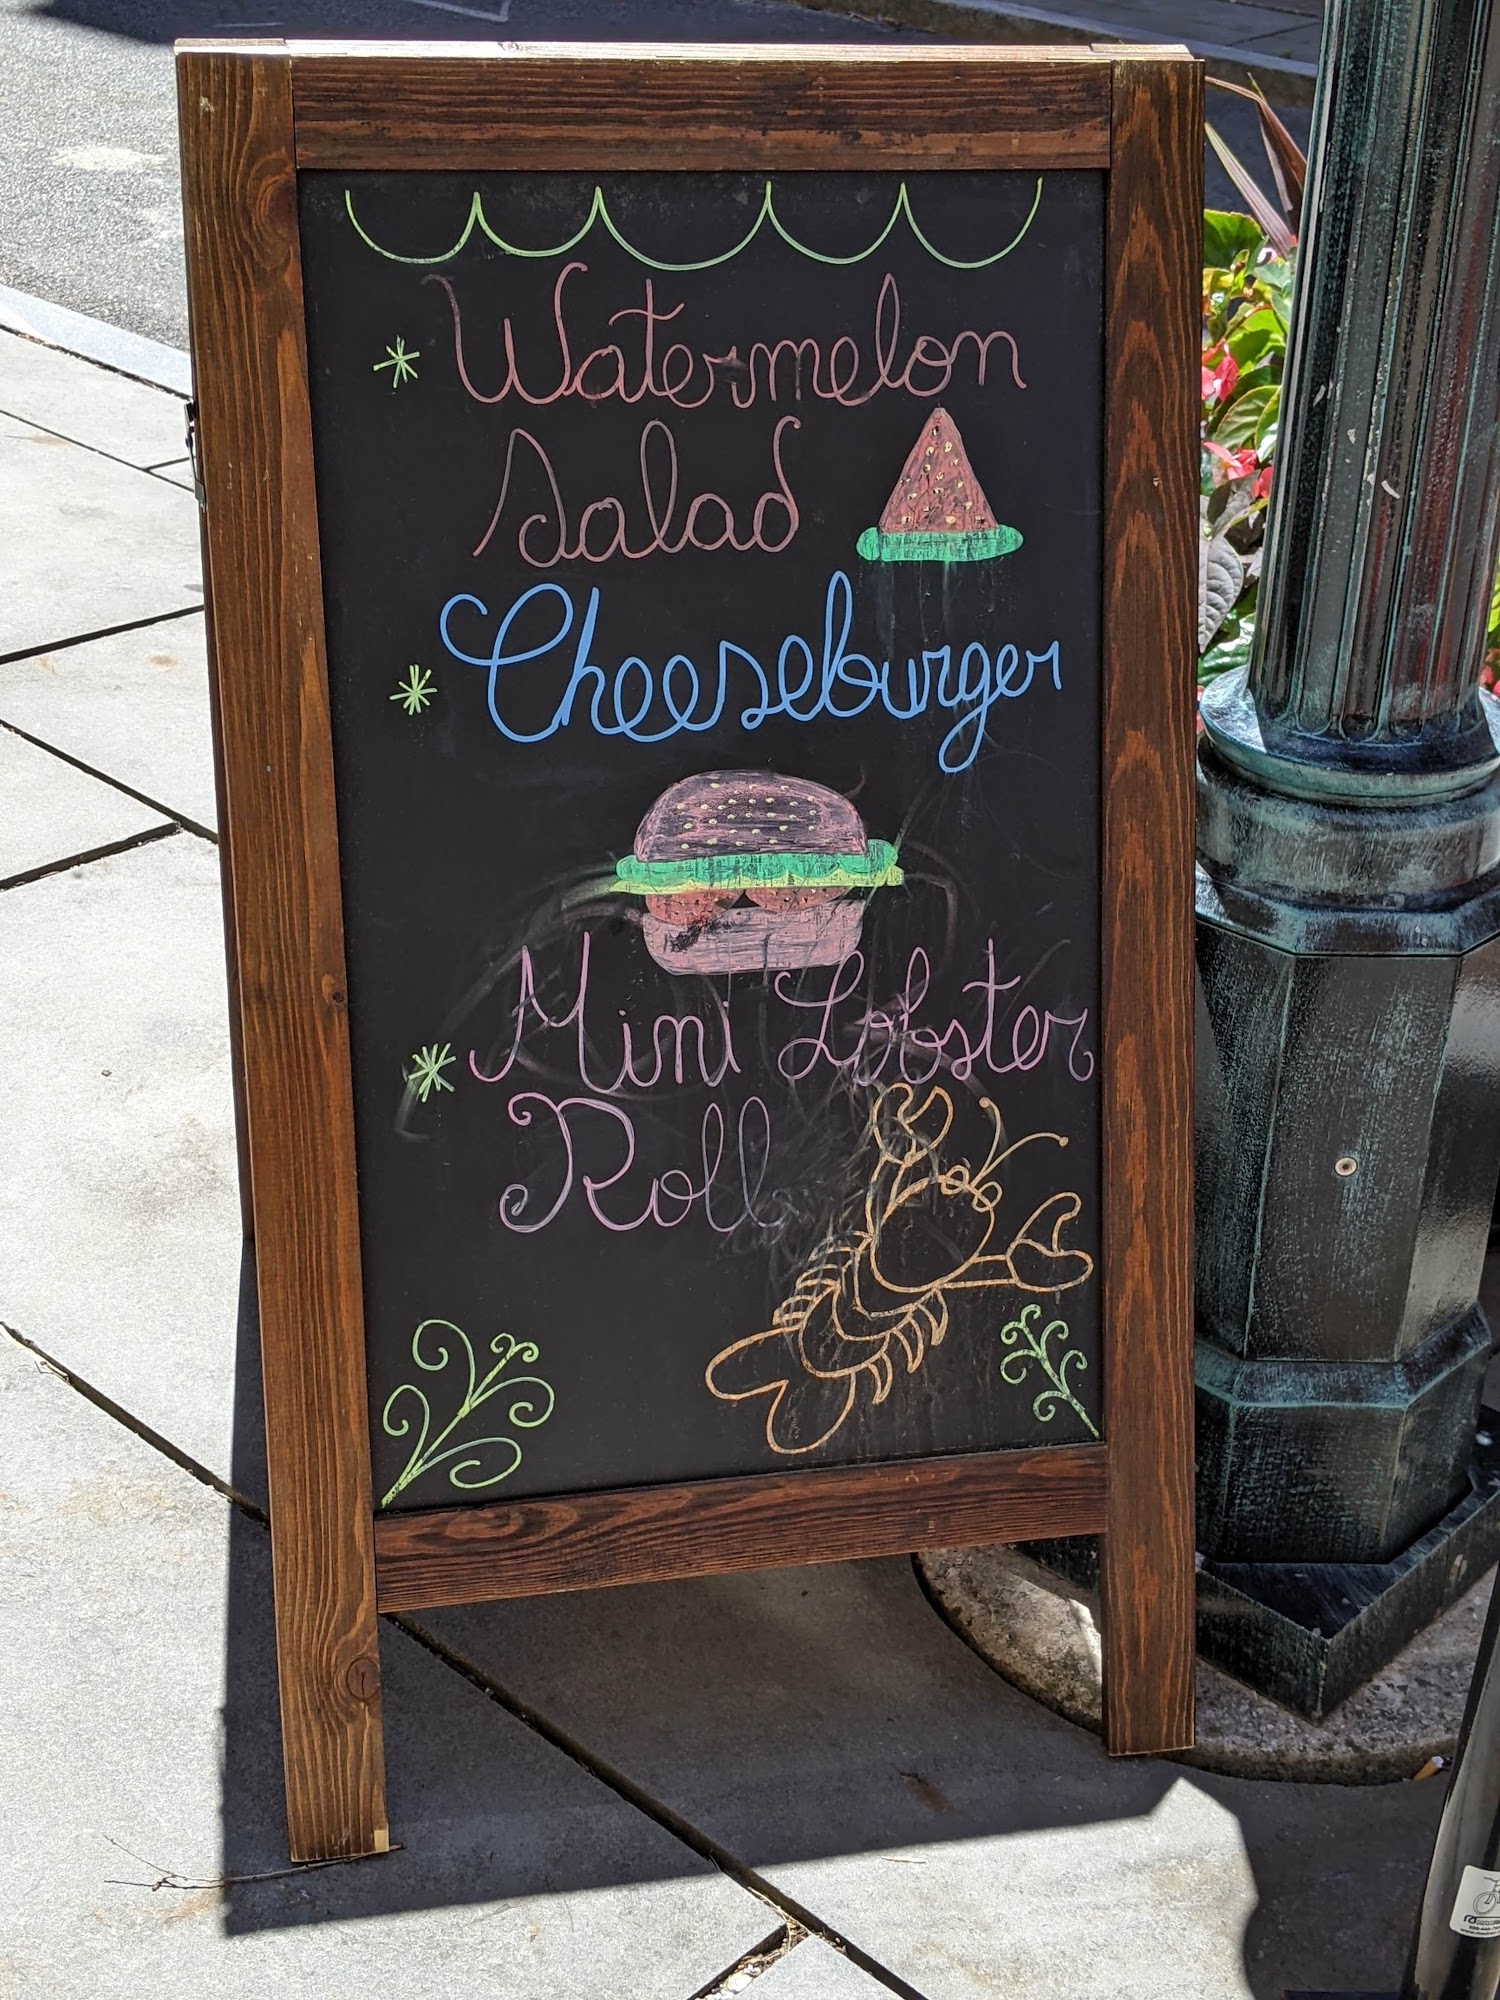 Watermelon
Salad
Cheeseburger
Mini Lobster
Roll